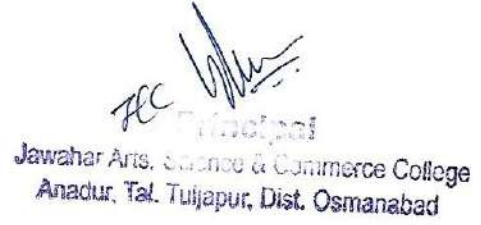 Principal
Jawahar Arts, Science & Commerce College
Anadur, Tal. Tuljapur, Dist. Osmanabad